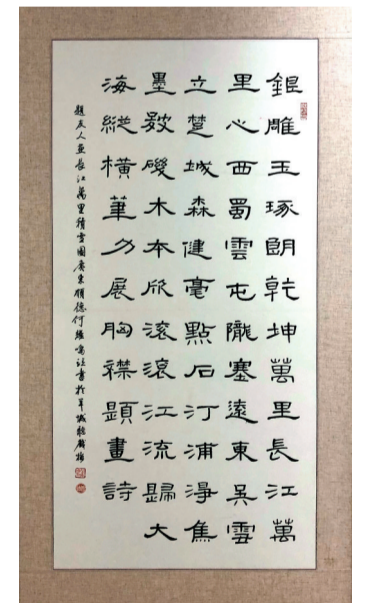 銀雕玉琢朗乾坤萬里長江萬
里心西蜀雲屯隴塞遠東吳雪
立楚城森健毫點石汀浦淨焦
墨皴磯木本欣滾滾江流歸大
海縱橫筆力展胸襟題畫詩
題友人畫長江萬里積雪圖廣東順德何 書於羊城